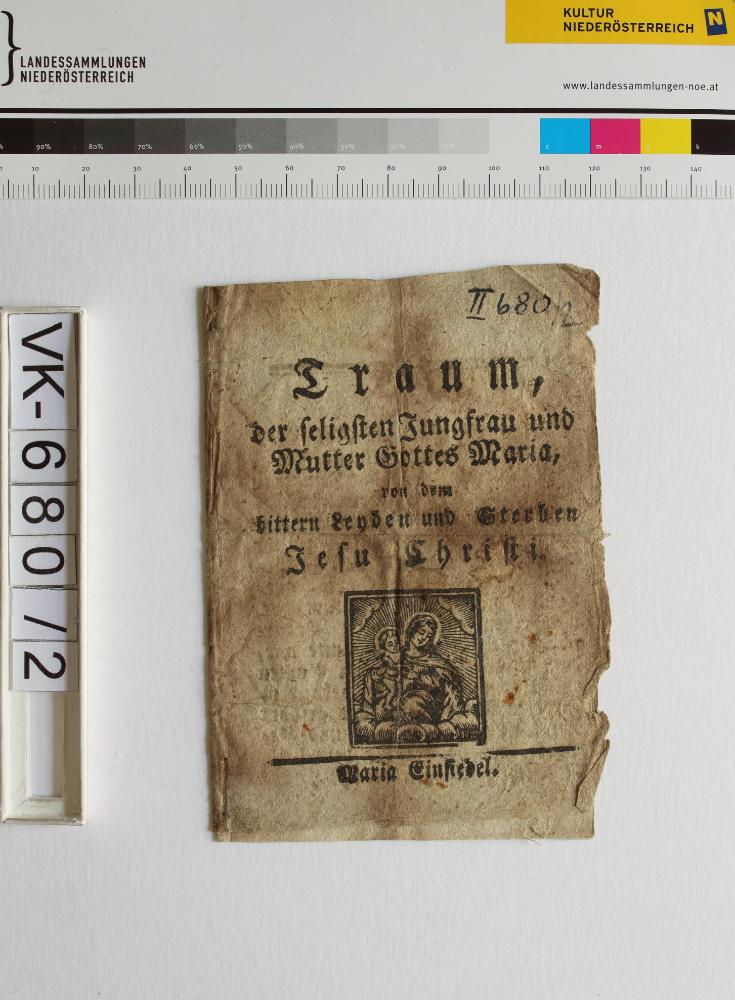 LANDESSAMMLUNGEN
NIEDERÖSTERREICH
KULTUR
NIEDERÖSTERREICH
N
www.landessammlungen-noe.at
90% 80% 70% 60% 50% 40% 30% 20% 10% c m y k
10 20 30 40 50 60 70 80 90 100 110 120 130 140
VK-680/2
II 680/2
Traum,
der seligsten Jungfrau und
Mutter Gottes Maria,
von dem
bittern Leyden und Sterben
Jesu Christi.
Maria Einsiedel.